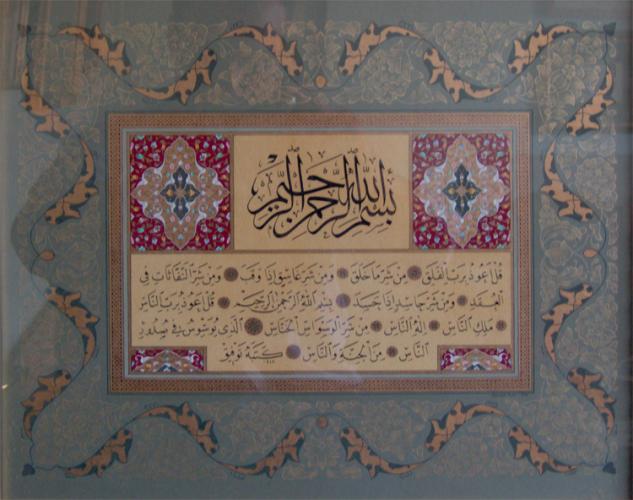 بسم الله الرحمن الرحيم
قل اعوذ برب الفلق من شر ما خلق ومن شر غاسق اذا وقب ومن شر النفاثات في
العقد ومن شر حاسد اذا حسد بسم الله الرحمن الرحيم قل اعوذ برب الناس
ملك الناس اله الناس من شر الوسواس الخناس الذي يوسوس في صدور
الناس من الجنة والناس كتبه توفيق